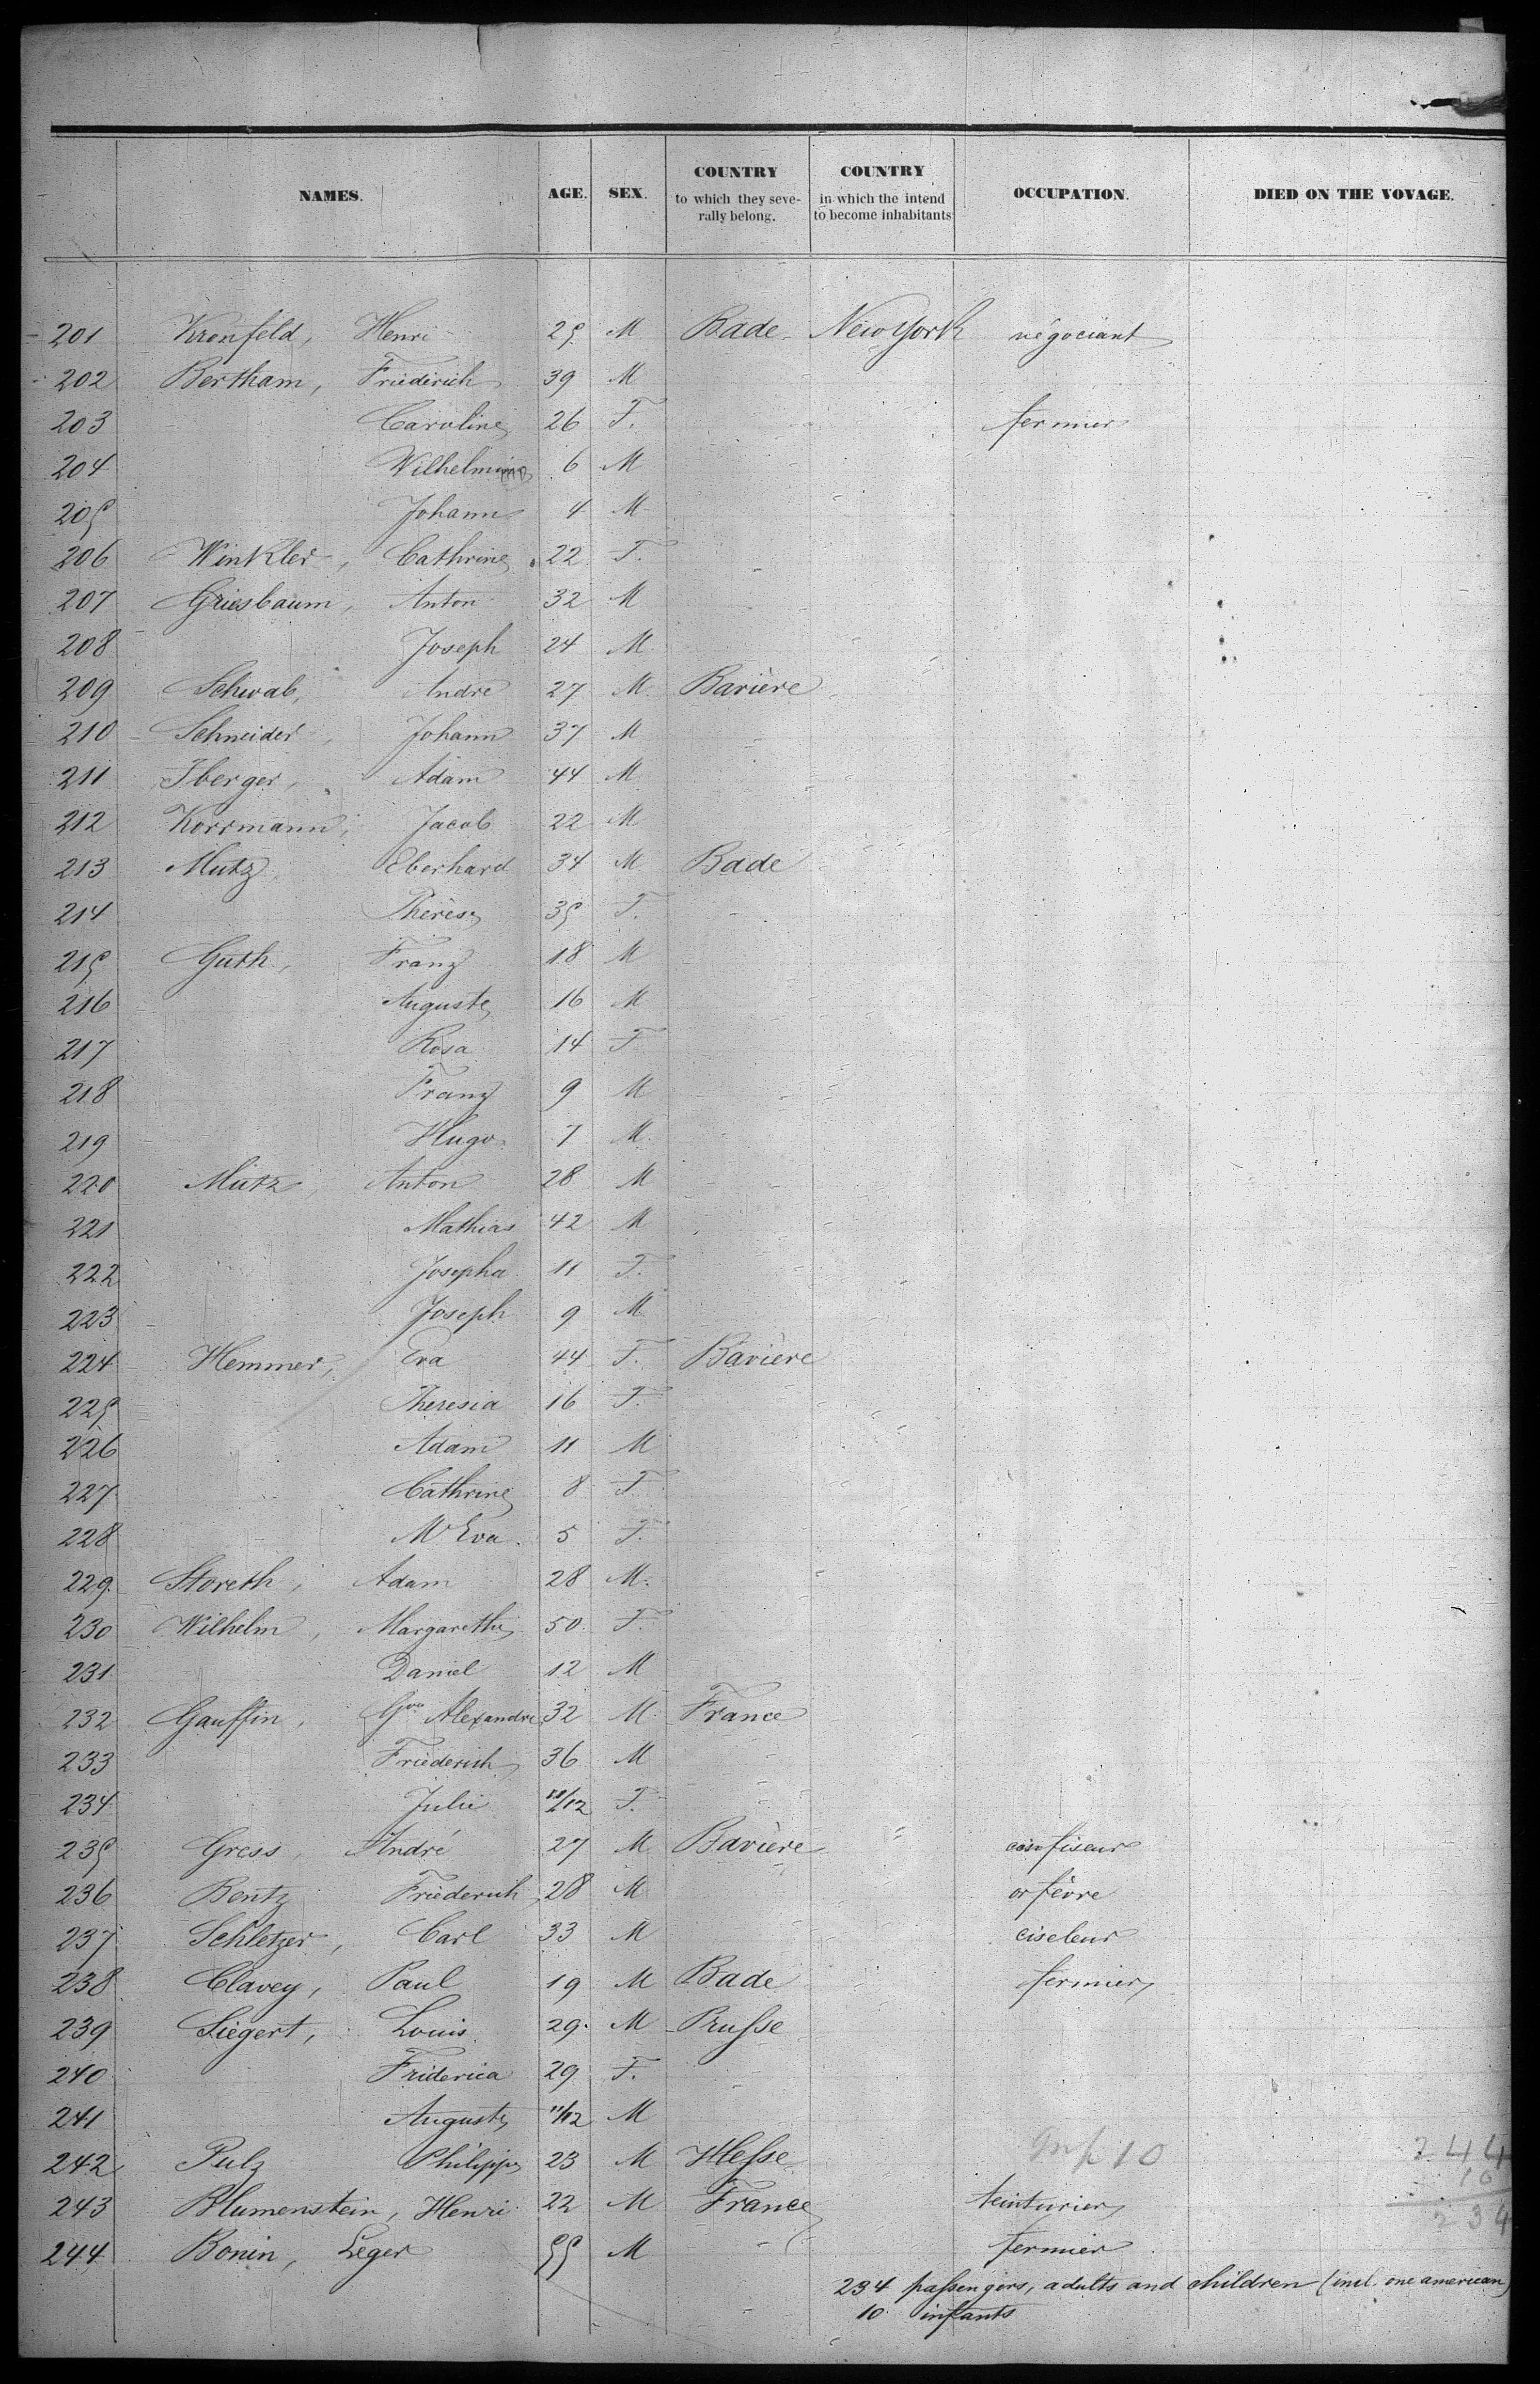 NAMES. AGE. SEX. COUNTRY to which they severally belong. COUNTRY in which the intend to become inhabitants OCCUPATION. DIED ON THE VOYAGE.
201 Kronfeld, Henri 25 M Bade New York négociant
202 Bertham, Friederich 39 M
203 Caroline 26 F. fermier
204 Wilhelm 6 M
205 Johann 4 M
206 Winkler, Cathrine 22 F.
207 Griesbaum, Anton 32 M
208 Joseph 24 M
209 Schwab, André 27 M Bavière
210 Schneider, Johann 37 M
211 Iberger, Adam 44 M
212 Korrmann, Jacob 22 M
213 Mutz, Eberhard 34 M Bade
214 Thérèse 35 F.
215 Guth, Franz 18 M
216 Auguste 16 M
217 Rosa 14 F
218 Franz 9 M
219 Hugo 7 M
220 Mutz, Anton 28 M
221 Mathias 42 M
222 Josepha 11 F.
223 Joseph 9 M
224 Hemmer, Eva 44 F. Bavière
225 Theresia 16 F.
226 Adam 11 M
227 Cathrine 8 F
228 M Eva 5 F.
229 Storeth, Adam 28 M.
230 Wilhelm, Margarethe 50 F.
231 Daniel 12 M
232 Gauffin, Alexandre 32 M France
233 Friederich 36 M
234 Julie /12 F.
235 Gress, André 27 M Bavière confiseur
236 Bentz Friederich 28 M orfèvre
237 Schletzer, Carl 33 M ciseleur
238 Clavey, Paul 19 M Bade fermier
239 Siegert, Louis 29 M Prusse
240 Friderica 29 F.
241 Auguste 11/12 M
242 Pulz Philippe 23 M Hesse Inf 10 244
10
243 Blumenstein, Henri 22 M France teinturier 234
244 Bonin, Leger 55 M fermier
234 passengers, adults and children (incl. one american)
10 infants